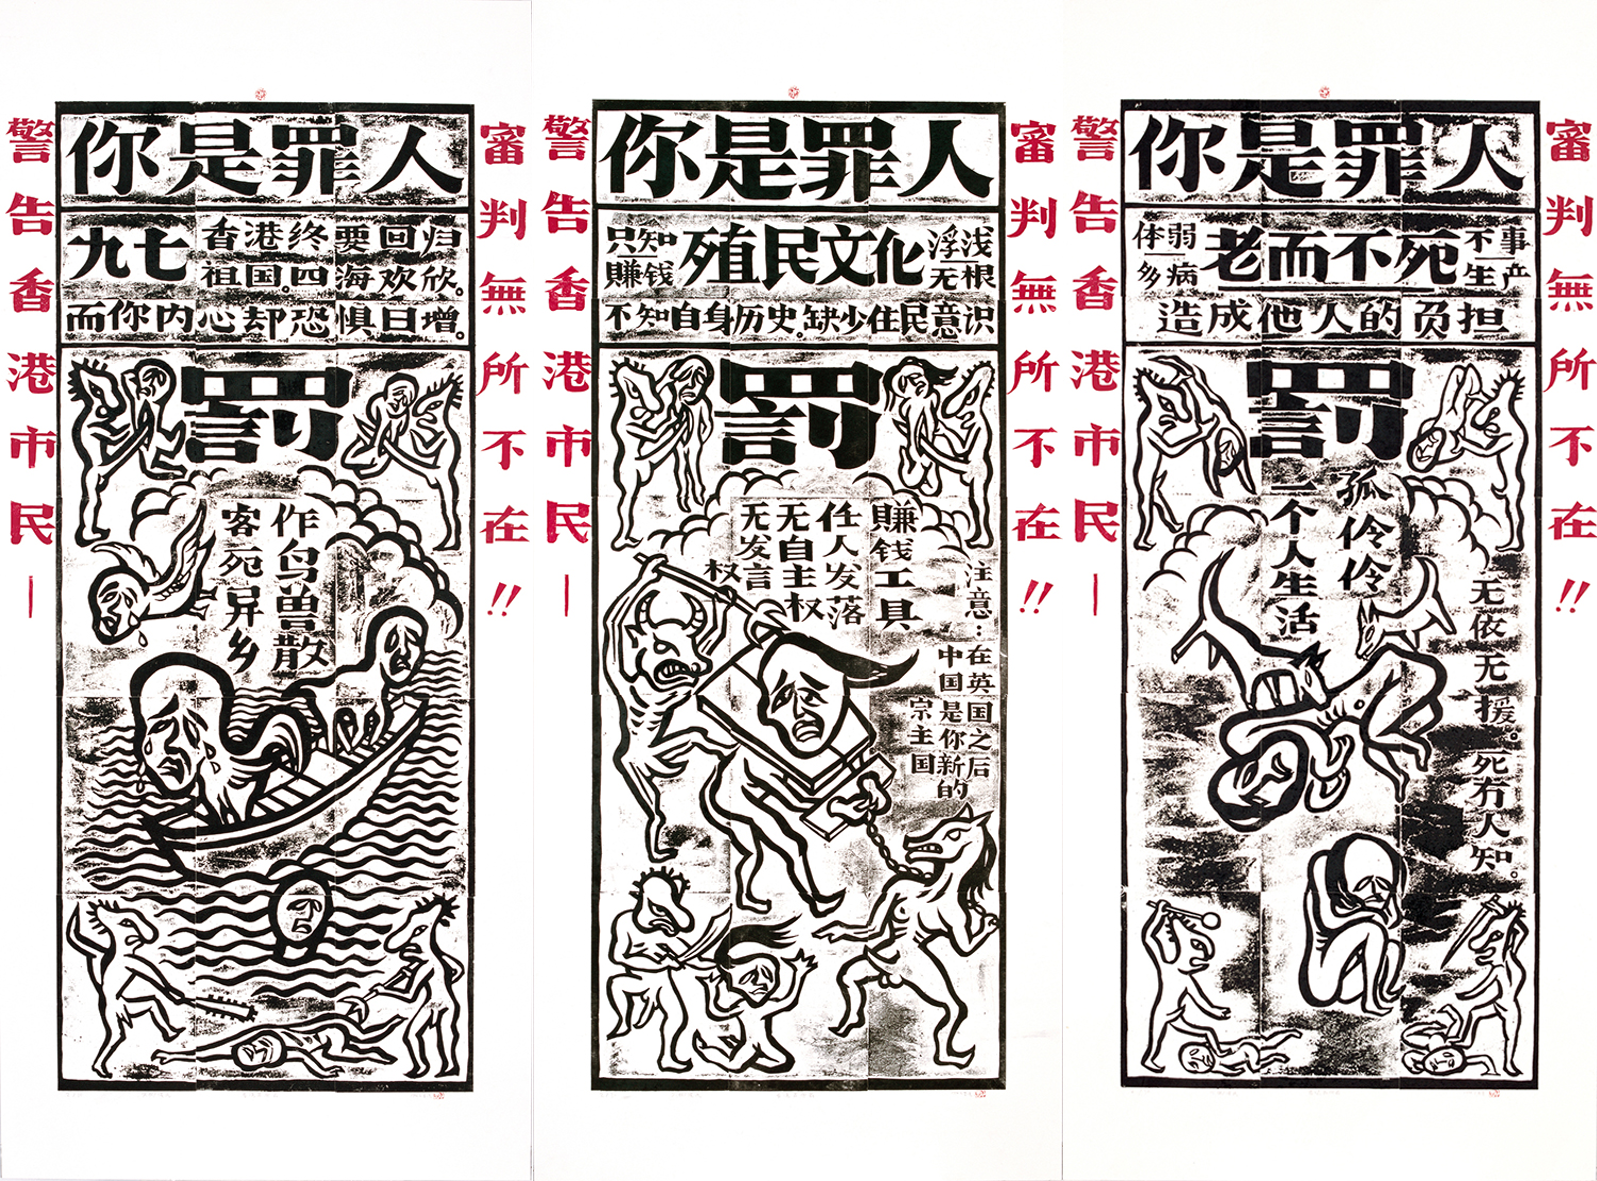 警告香港市民—
你是罪人
九七
香港终要回归
祖国。四海欢欣。
而你内心却恐惧日增。
罚
作鸟兽散
客死异乡
審判無所不在!!
警告香港市民—
你是罪人
只知
賺钱
殖民文化
浮浅
无根
不知自身历史。缺少住民意识
罚
賺钱工具
任人发落
无自主权
无发言
权
注意：在英国之后
中国是你新的
宗主国
審判無所不在!!
警告香港市民—
你是罪人
体弱
多病
老而不死
不事
生产
造成他人的负担
罚
孤伶伶
一个人生活
无依无援。死冇人知。
審判無所不在!!